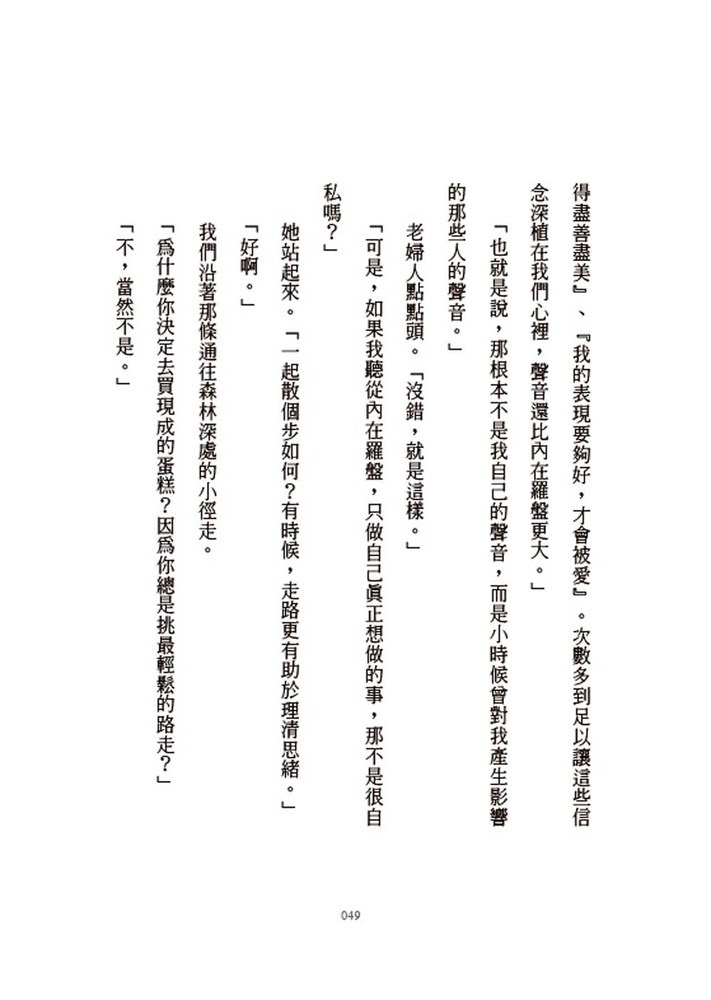 得盡善盡美』、『我的表現要夠好，才會被愛』。次數多到足以讓這些信
念深植在我們心裡，聲音還比內在羅盤更大。」
「也就是說，那根本不是我自己的聲音，而是小時候曾對我產生影響
的那些人的聲音。」
老婦人點點頭。「沒錯，就是這樣。」
「可是，如果我聽從內在羅盤，只做自己真正想做的事，那不是很自
私嗎？」
她站起來。「一起散個步如何？有時候，走路更有助於理清思緒。」
「好啊。」
我們沿著那條通往森林深處的小徑走。
「為什麼你決定去買現成的蛋糕？因為你總是挑最輕鬆的路走？」
「不，當然不是。」
049